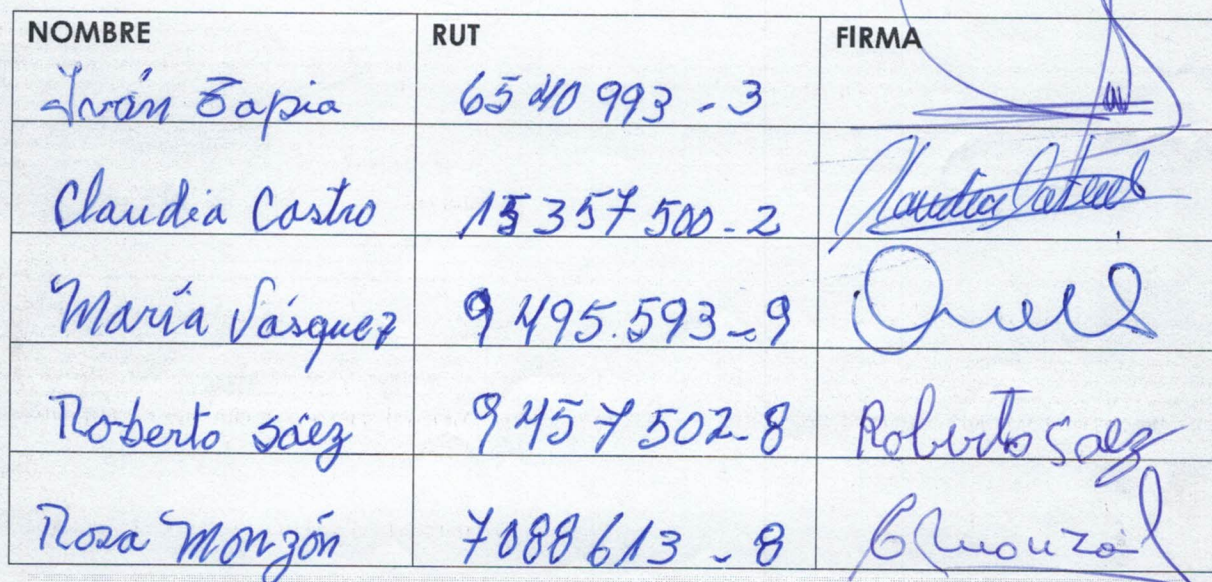 NOMBRE RUT FIRMA
Iván Tapia 6540993-3
Claudia Castro 15357500-2
María Vásquez 9495.593-9
Roberto Sáez 9457502-8 Roberto Saez
Rosa Monzón 7088613-8